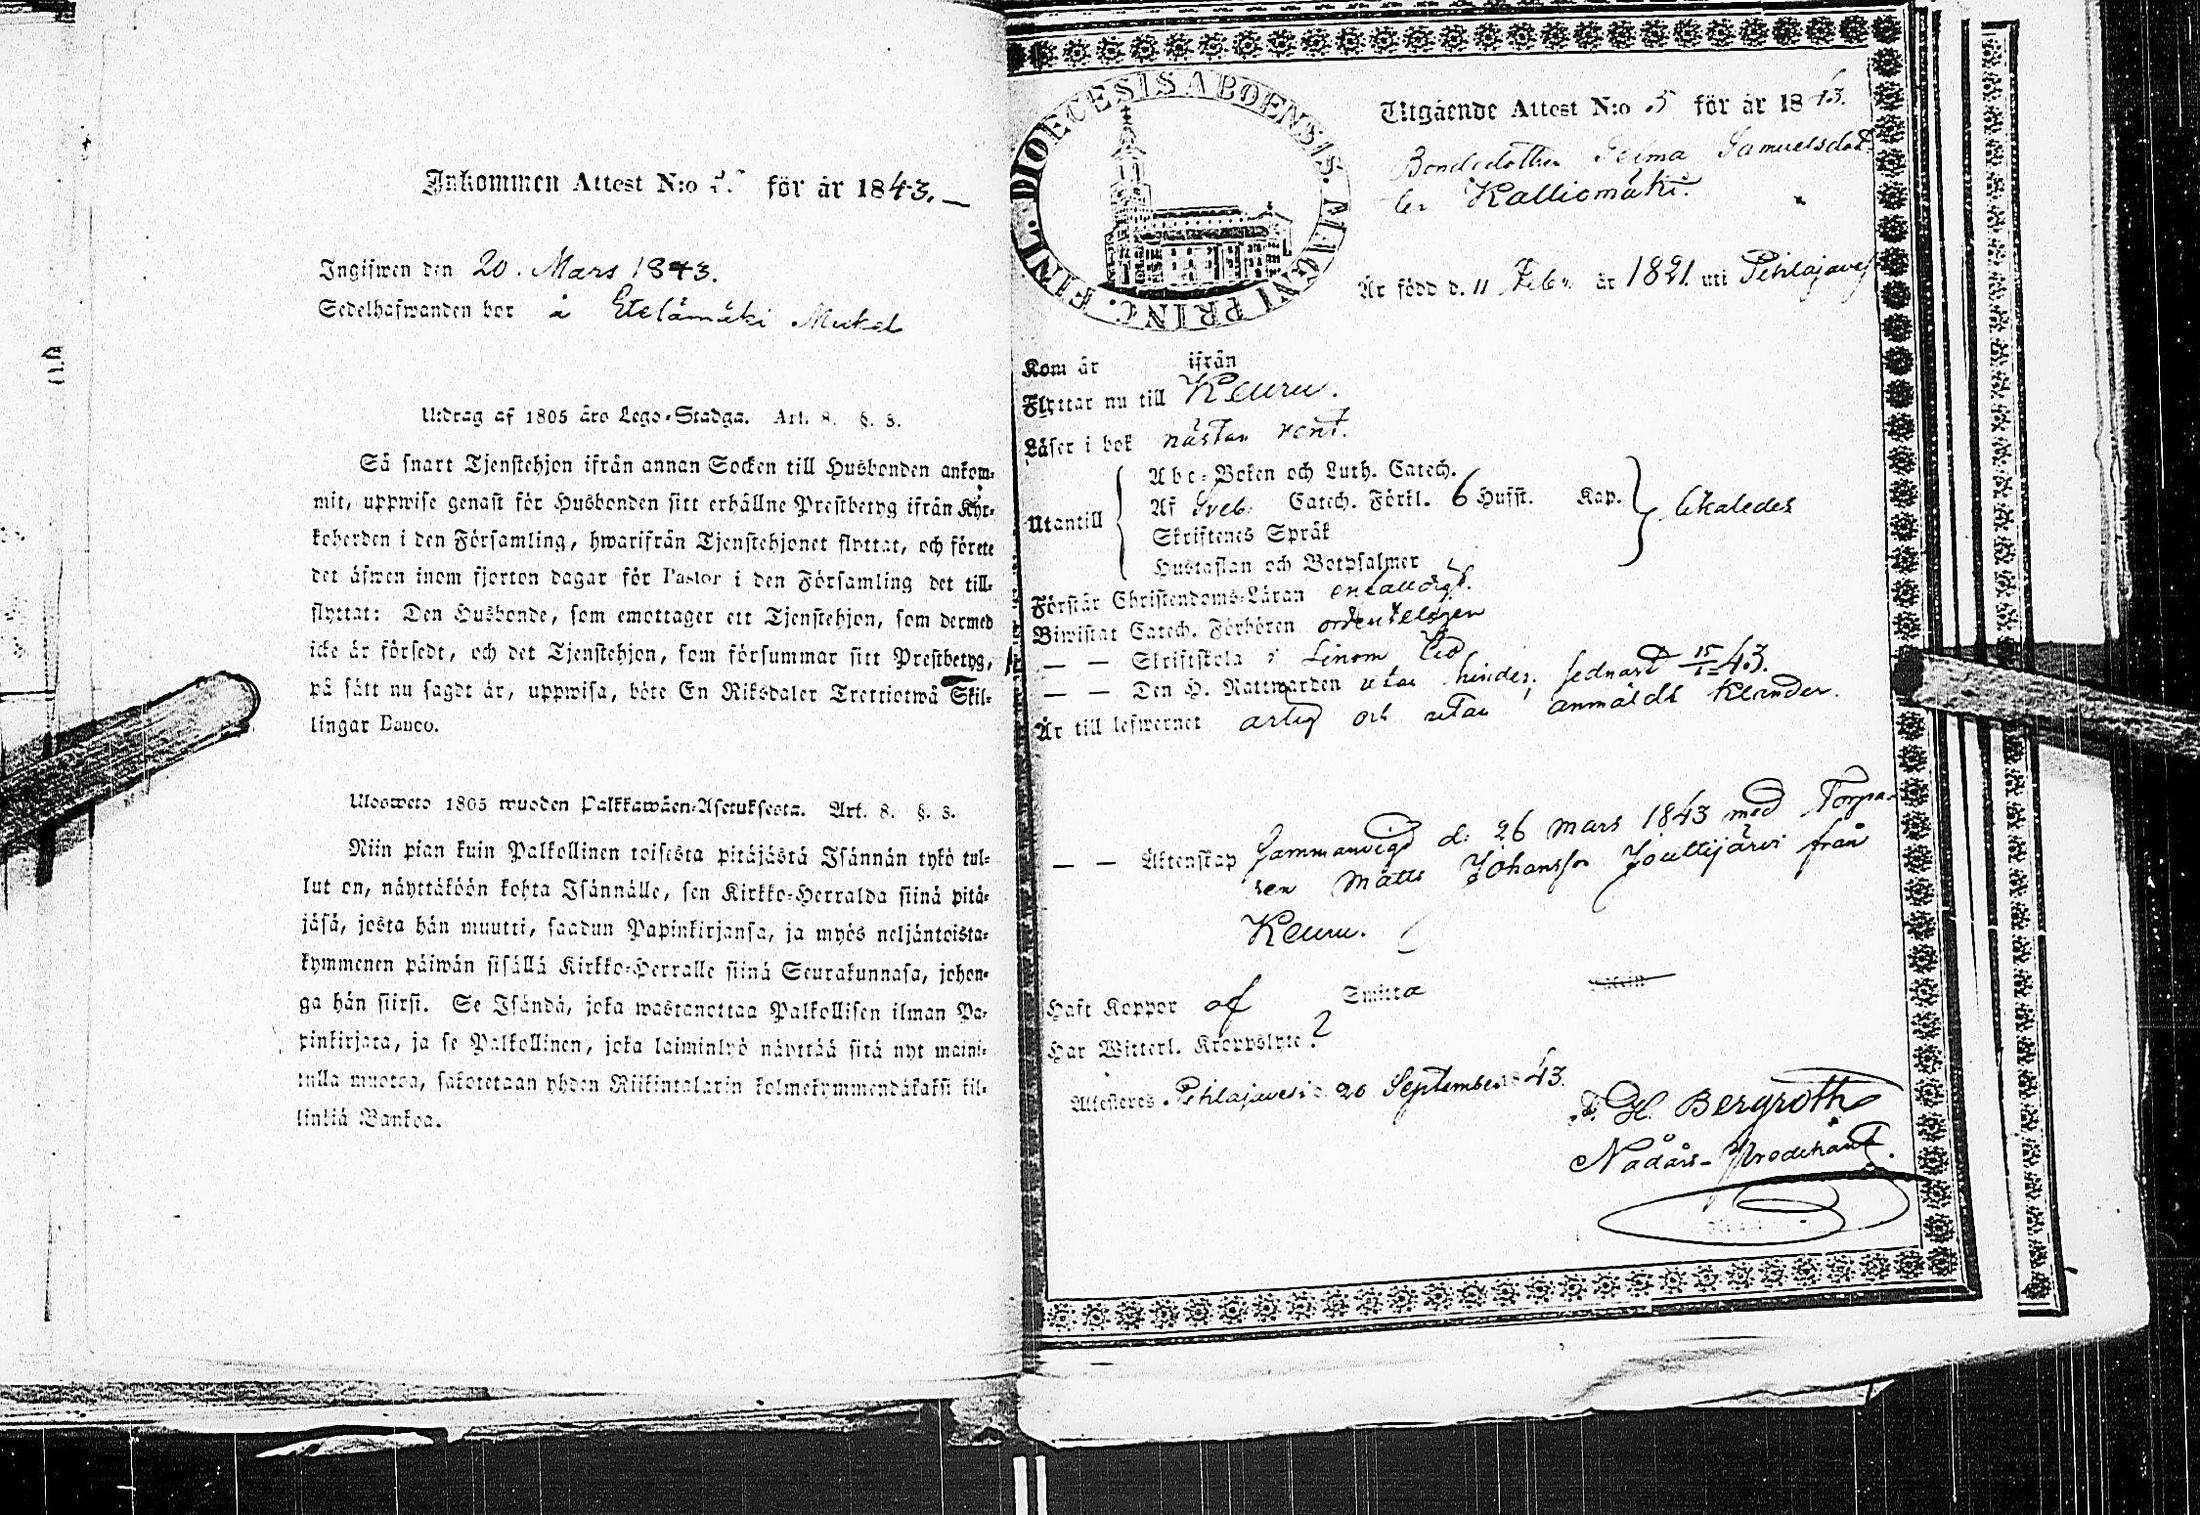 Inkommen Attest N:o för år 1843.
Ingifwen den 20. Mars 1843.
Sedelhafwanden bor å Etelämäki Mickel
Utdrag af 1805 åro Lego-Stadga. Art. 8. §. 8.
Så snart Tjenstehjon ifrån annan Socken till Husbonden ankom-
mit, uppwise genast för Husbonden sitt erhållne Prestbetyg ifrån Kyr-
koherden i den Församling, hwarifrån Tjenstehjonet flyttat, och förete
det äfwen inom fjorton dagar för Pastor i den Församling det till-
flyttat: Den Husbonde, som emottager ett Tjenstehjon, som dermed
icke är försedt, och det Tjenstehjon, som försummar sitt Prestbetyg,
på sätt nu sagdt är, uppwisa, böte En Riksdaler Trettiotwå Skil-
lingar Banco.
Ulosweto 1805 wuoden Palkkawäen-Asetuksesta. Art. 8. §. 8.
Niin pian kuin Palkollinen toisesta pitäjästä Isännän tykö tul-
lut on, näyttäköön kohta Isännälle, sen Kirkko-Herralda siinä pitä-
jäsä, josta hän muutti, saadun Papinkirjansa, ja myös neljäntoista-
kymmenen päiwän sisällä Kirkko-Herralle siinä Seurakunnasa, johon-
ga hän siirsi. Se Isändä, joka wastanottaa Palkollisen ilman Pa-
pinkirjata, ja se Palkollinen, joka laiminlyö näyttää sitä nyt maini-
tulla muotoa, sakotetaan yhden Riikintalarin kolmekymmendäkaksi kil-
linkiä Bankoa.
FINL. DIOECESIS ABOENSIS. MAGNI PRINC.
Utgående Attest N:o 5 för år 1843.
Bondedotter Selma Samuelsdot
ter Kalliomäki.
Är född d. 11 Febr. år 1821. uti Pihlajavesi
Kom år ifrån
Flyttar nu till Keuru.
Läser i bok nästan rent.
Abc-Boken och Luth. Catech.
Utantill Af Sveb. Catech. Förkl. 6 Hufst. Kap. likaledes
Skriftenes Språk
Hustaflan och Botpsalmer
Förstår Christendoms-Läran enfalldigt.
Biwistat Catech. Förhören ordenteligen
— — Skriftskola i Sinom tid
— — Den H. Nattwarden utan hinder, sednast 15/1 43.
Är till lefwernet artig och utan anmäldt klander.
— — Äktenskap Sammanvigd d: 26 Mars 1843 med Torpa-
ren Matts Johansson Jouttijärvi från
Keuru.
Haft Koppor af Smitta
Har Witterl. Kroppslyte ?
Attesteres Pihlajavesi d. 20 September 1843.
F. H. Bergroth
Nådårs-Predikant.